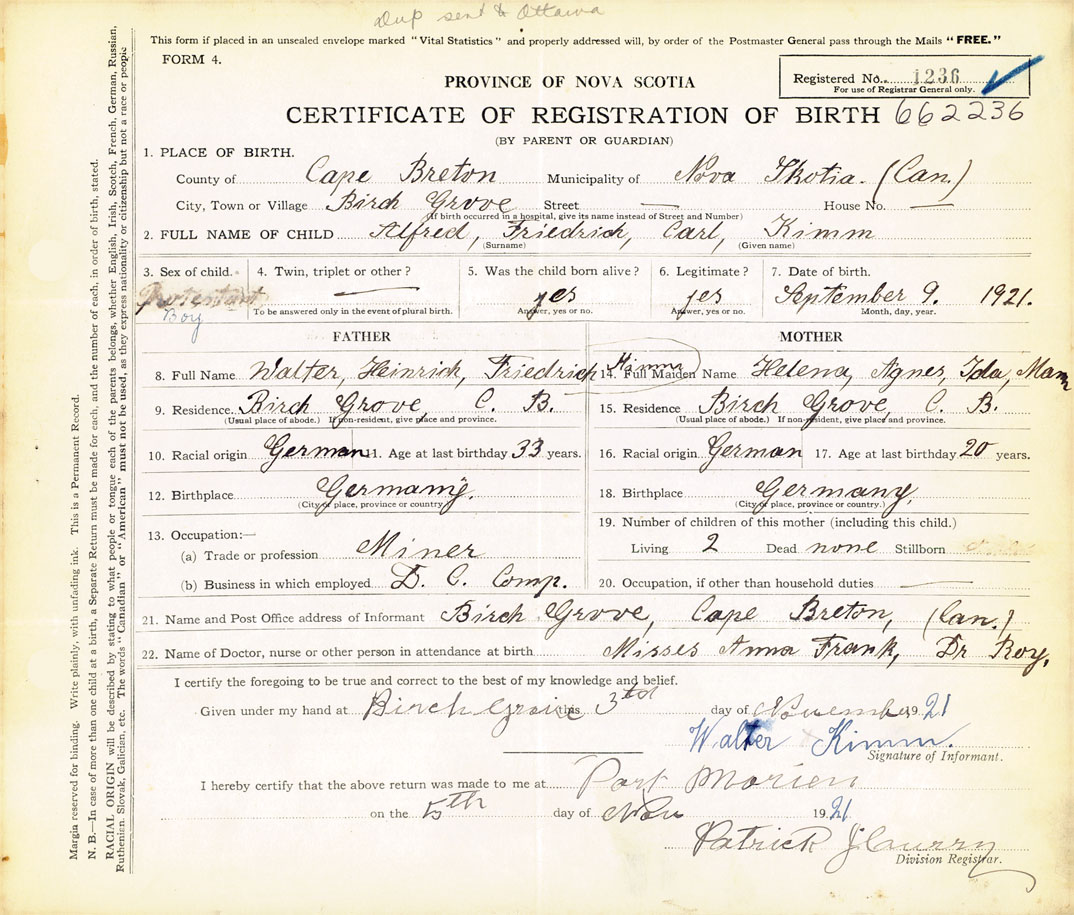 Dup sent to Ottawa
This form if placed in an unsealed envelope marked "Vital Statistics" and properly addressed will, by order of the Postmaster General pass through the Mails "FREE."
FORM 4.
PROVINCE OF NOVA SCOTIA
Registered No. 1236
For use of Registrar General only.
CERTIFICATE OF REGISTRATION OF BIRTH 662236
(BY PARENT OR GUARDIAN)
1. PLACE OF BIRTH.
County of Cape Breton Municipality of Nova Skotia. (Can.)
City, Town or Village Birch Grove Street — House No. —
(If birth occurred in a hospital, give its name instead of Street and Number)
2. FULL NAME OF CHILD Alfred, Friedrich, Carl, Kimm
(Surname) (Given name)
3. Sex of child. 4. Twin, triplet or other? 5. Was the child born alive? 6. Legitimate? 7. Date of birth.
Protestant — yes yes September 9. 1921.
Boy To be answered only in the event of plural birth. Answer, yes or no. Answer, yes or no. Month, day, year.
FATHER MOTHER
8. Full Name Walter, Heinrich, Friedrich Kimm 14. Full Maiden Name Helena, Agnes, Ida,
9. Residence Birch Grove, C. B. 15. Residence Birch Grove, C. B.
(Usual place of abode.) If non-resident, give place and province. (Usual place of abode.) If non-resident, give place and province.
10. Racial origin German 11. Age at last birthday 33 years. 16. Racial origin German 17. Age at last birthday 20 years.
12. Birthplace Germany. 18. Birthplace Germany,
(City or place, province or country) (City or place, province or country.)
13. Occupation:— 19. Number of children of this mother (including this child.)
(a) Trade or profession Miner Living 2 Dead none Stillborn
(b) Business in which employed D. C. Comp. 20. Occupation, if other than household duties —
21. Name and Post Office address of Informant Birch Grove, Cape Breton, (Can.)
22. Name of Doctor, nurse or other person in attendance at birth Misses Anna Frank, Dr Roy,
I certify the foregoing to be true and correct to the best of my knowledge and belief.
Given under my hand at Birch Grove this 3td day of November 1921
Walter Kimm.
Signature of Informant.
I hereby certify that the above return was made to me at Port Morien
on the 5th day of Nov 1921
Patrick J Curry
Division Registrar.
Margin reserved for binding. Write plainly, with unfading ink. This is a Permanent Record.
N. B.—In case of more than one child at a birth, a Separate Return must be made for each, and the number of each, in order of birth, stated.
RACIAL ORIGIN will be described by stating to what people or tongue each of the parents belongs, whether English, Irish, Scotch, French, German, Russian,
Ruthenian, Slovak, Galician, etc. The words "Canadian" or "American" must not be used, as they express nationality or citizenship but not a race or people